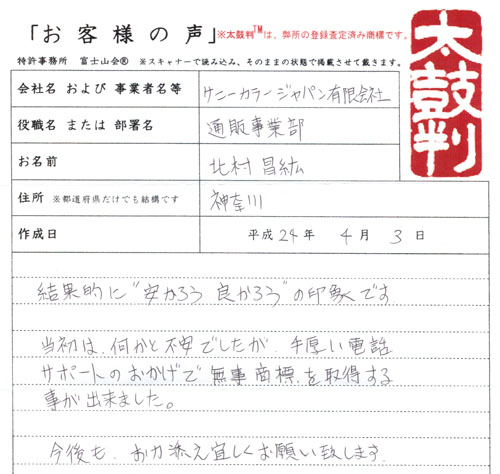 「お客様の声」※太鼓判TMは、弊所の登録査定済み商標です。
特許事務所 富士山会® ※スキャナーで読み込み、そのままの状態で掲載させて戴きます。
太鼓判
会社名 および 事業者名等 ケニーカラージャパン有限会社
役職名 または 部署名 通販事業部
お名前 北村 昌紘
住所 ※都道府県だけでも結構です 神奈川
作成日 平成 24 年 4 月 3 日
結果的に"安かろう 良かろう"の印象です。
当初は、何かと不安でしたが、手厚い電話
サポートのおかげで無事商標を取得する
事が出来ました。
今後も、お力添え宜しくお願い致します。